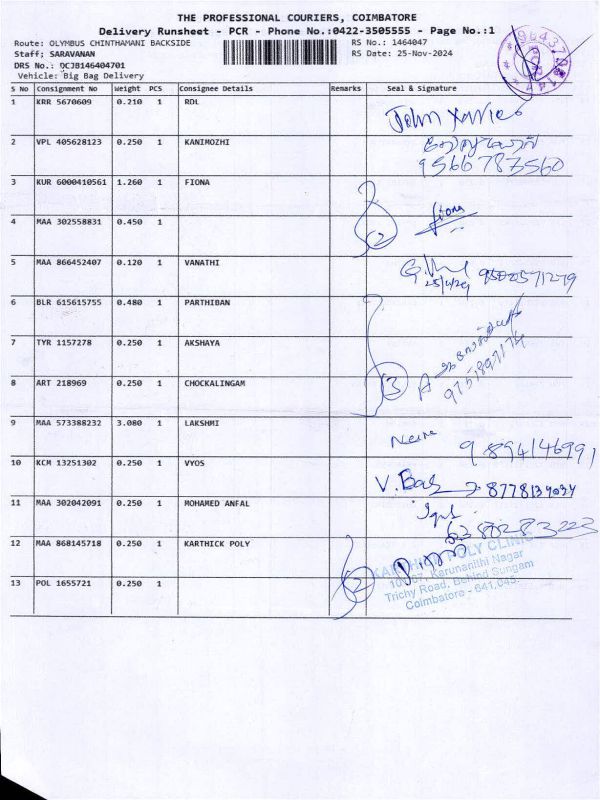 THE PROFESSIONAL COURIERS, COIMBATORE
Delivery Runsheet - PCR - Phone No.:0422-3505555 - Page No.:1
Route: OLYMBUS CHINTHAMANI BACKSIDE RS No.: 1464047
Staff; SARAVANAN RS Date: 25-Nov-2024
DRS No.: QCJB146404701
Vehicle: Big Bag Delivery
S No Consignment No Weight PCS Consignee Details Remarks Seal & Signature
1 KRR 5670609 0.210 1 RDL John Xavier
2 VPL 405628123 0.250 1 KANIMOZHI
9566787560
3 KUR 6000410561 1.260 1 FIONA
4 MAA 302558831 0.450 1 2 fiona
5 MAA 866452407 0.120 1 VANATHI
6 BLR 615615755 0.480 1 PARTHIBAN
7 TYR 1157278 0.250 1 AKSHAYA
8 ART 218969 0.250 1 CHOCKALINGAM 3 A
9 MAA 573388232 3.080 1 LAKSHMI 9894146991
10 KCM 13251302 0.250 1 VYOS V. Bas 8778134034
11 MAA 302042091 0.250 1 MOHAMED ANFAL
12 MAA 868145718 0.250 1 KARTHICK POLY
13 POL 1655721 0.250 1 2
POLY CLINIC
Karunanithi Nagar
Trichy Road, Behind Sungam
Coimbatore - 641 045.